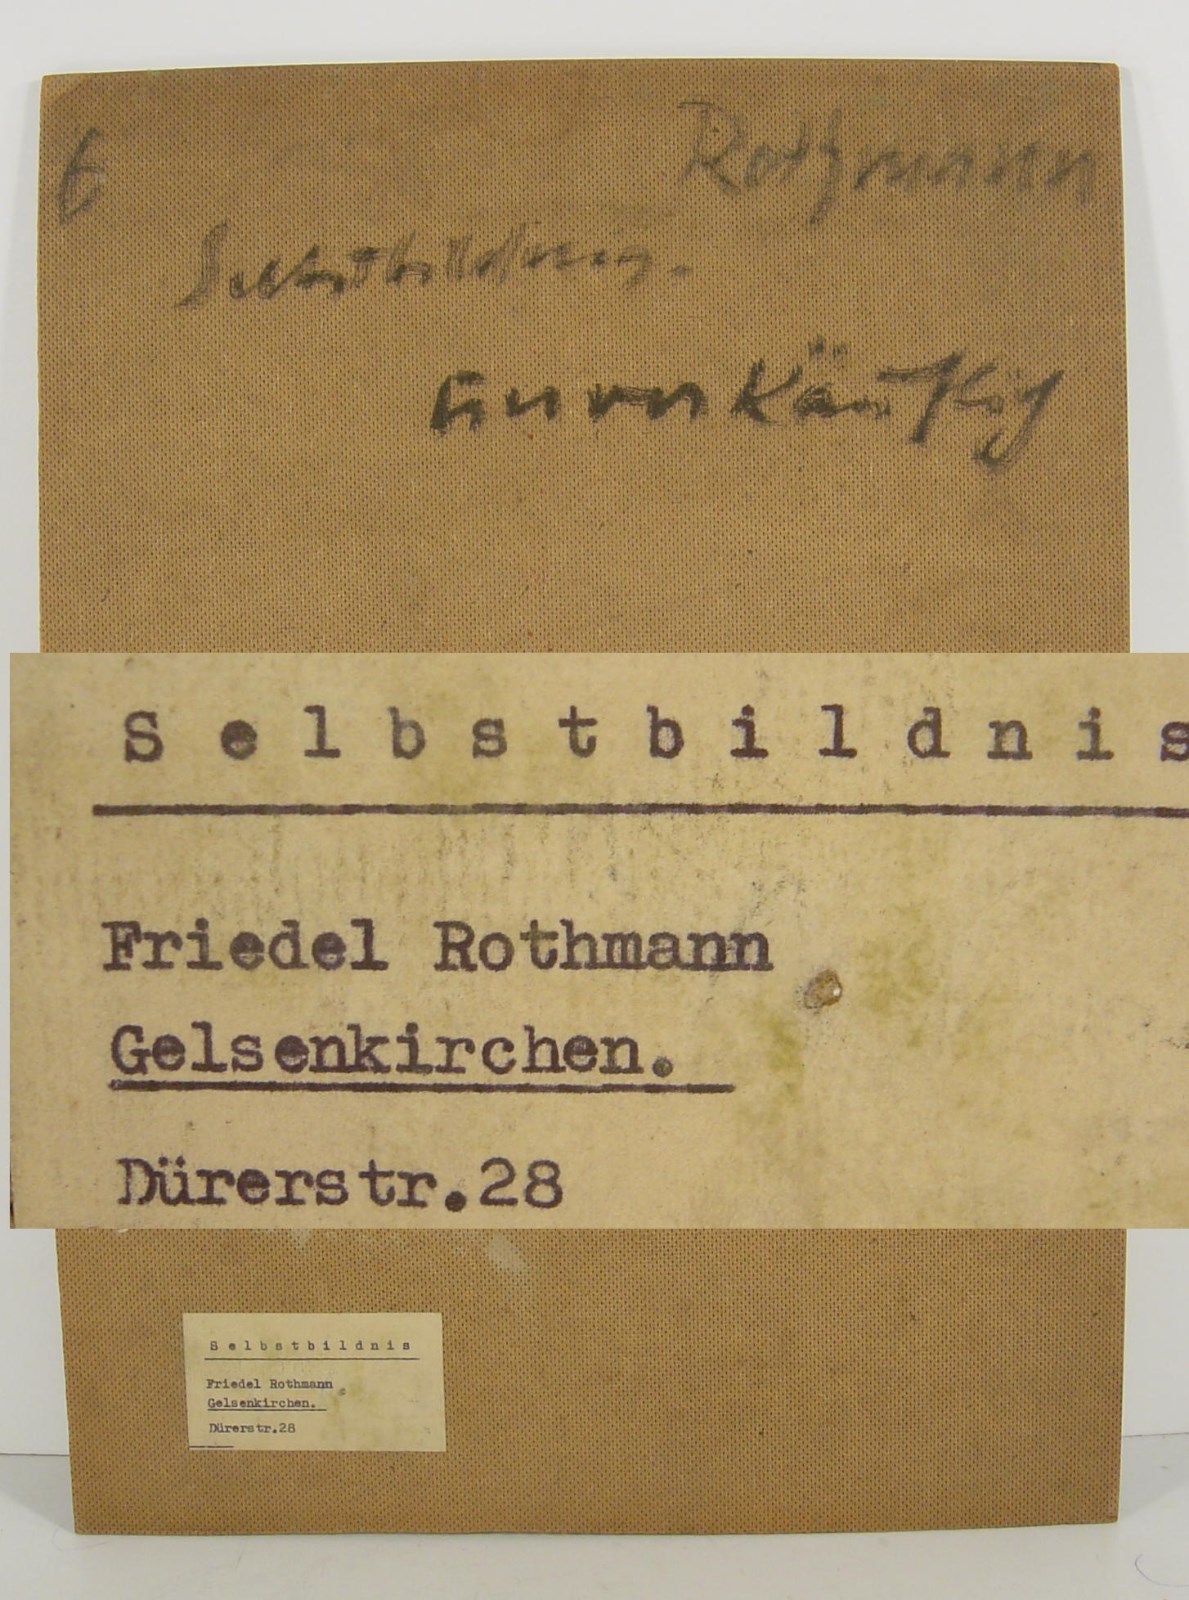 6
Rothmann
Selbstbildnis.
unverkäuflich
S e l b s t b i l d n i s
Friedel Rothmann
Gelsenkirchen.
Dürerstr.28
S e l b s t b i l d n i s
Friedel Rothmann
Gelsenkirchen.
Dürerstr.28